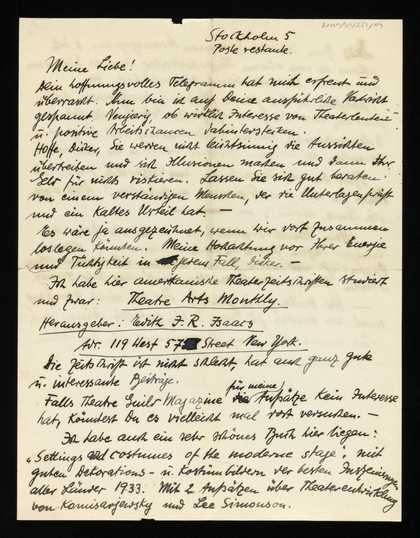 Stockholm 5
Poste restante.
Meine Liebe!
Dein hoffnungsvolles Telegramm hat mich erfreut und
überrascht. Nun bin ich auf Deine ausführliche Nachricht
gespannt. Neugierig, ob wirklich Interesse von Theaterleuten
u. positive Arbeitschancen dahinterstecken.
Hoffe, Sie werden nicht leichtsinnig die Aussichten
übertreiben und sich Illusionen machen und dann Ihr
Geld für nichts riskieren. Lassen Sie sich gut beraten
von einem verständigen Menschen, der die Unterlagen prüft
und ein kaltes Urteil hat. —
Es wäre ja ausgezeichnet, wenn wir dort zusammen
loslegen könnten. Meine Hochachtung vor Ihrer Energie
und Tüchtigkeit in Fall, —
Ich habe hier amerikanische Theaterzeitschriften studiert
und zwar: Theatre Arts Monthly.
Herausgeber: Edith J. R. Isaacs
Adr. 119 West 57 Street New York.
Die Zeitschrift ist nicht schlecht, hat auch ganz gute
u. interessante Beiträge.
Falls Theatre Guild Magazine für meine Aufsätze kein Interesse
hat, könntest Du es vielleicht mal dort versuchen. —
Ich habe auch ein sehr schönes Buch hier liegen:
„Settings and costumes of the moderne stage", mit
guten Dekorations- u. Kostümbildern der besten Inszenierungen
aller Länder 1933. Mit 2 Aufsätzen über Theaterentwicklung
von Komisarjewsky und Lee Simonson.